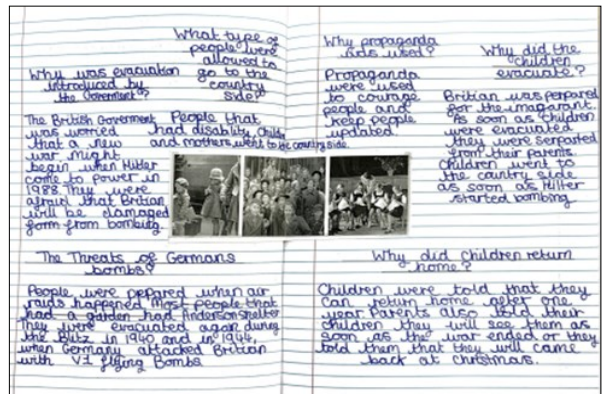 Why was evacuation
introduced by
the Goverment?
The British Goverment
was worried
that a new
war might
begin when Hitler
come to power in
1988. They were
afraid that Britian
will be damaged
form from bombing.
What type of
people were
allowed to
go to the
country
side?
People that
had disability, childre
and mothers went to be country side
Why propaganda
ads used?
Propaganda
were used
to courage
people and
keep people
updated
Why did the
children
evacuate?
Britian was perpared
for the imagarant.
As soon as children
were evacuated
they were serparted
from their parents.
Children went to
the cauntry side
as soon as Hitler
started bombing.
The Threats of Germans
bombs?
People were pepared when air
raids happened Most people that
had a garden had Anderson shelter
They were evacuated again during
the Blitz in 1940 and in 1944,
when Germany attacked Britian
with V1 flying Bombs.
Why did children return
home?
Children were told that they
can return home after one
year Parents also told their
children they will see them as
soon as the war ended or they
told them that they will came
back at christmas.